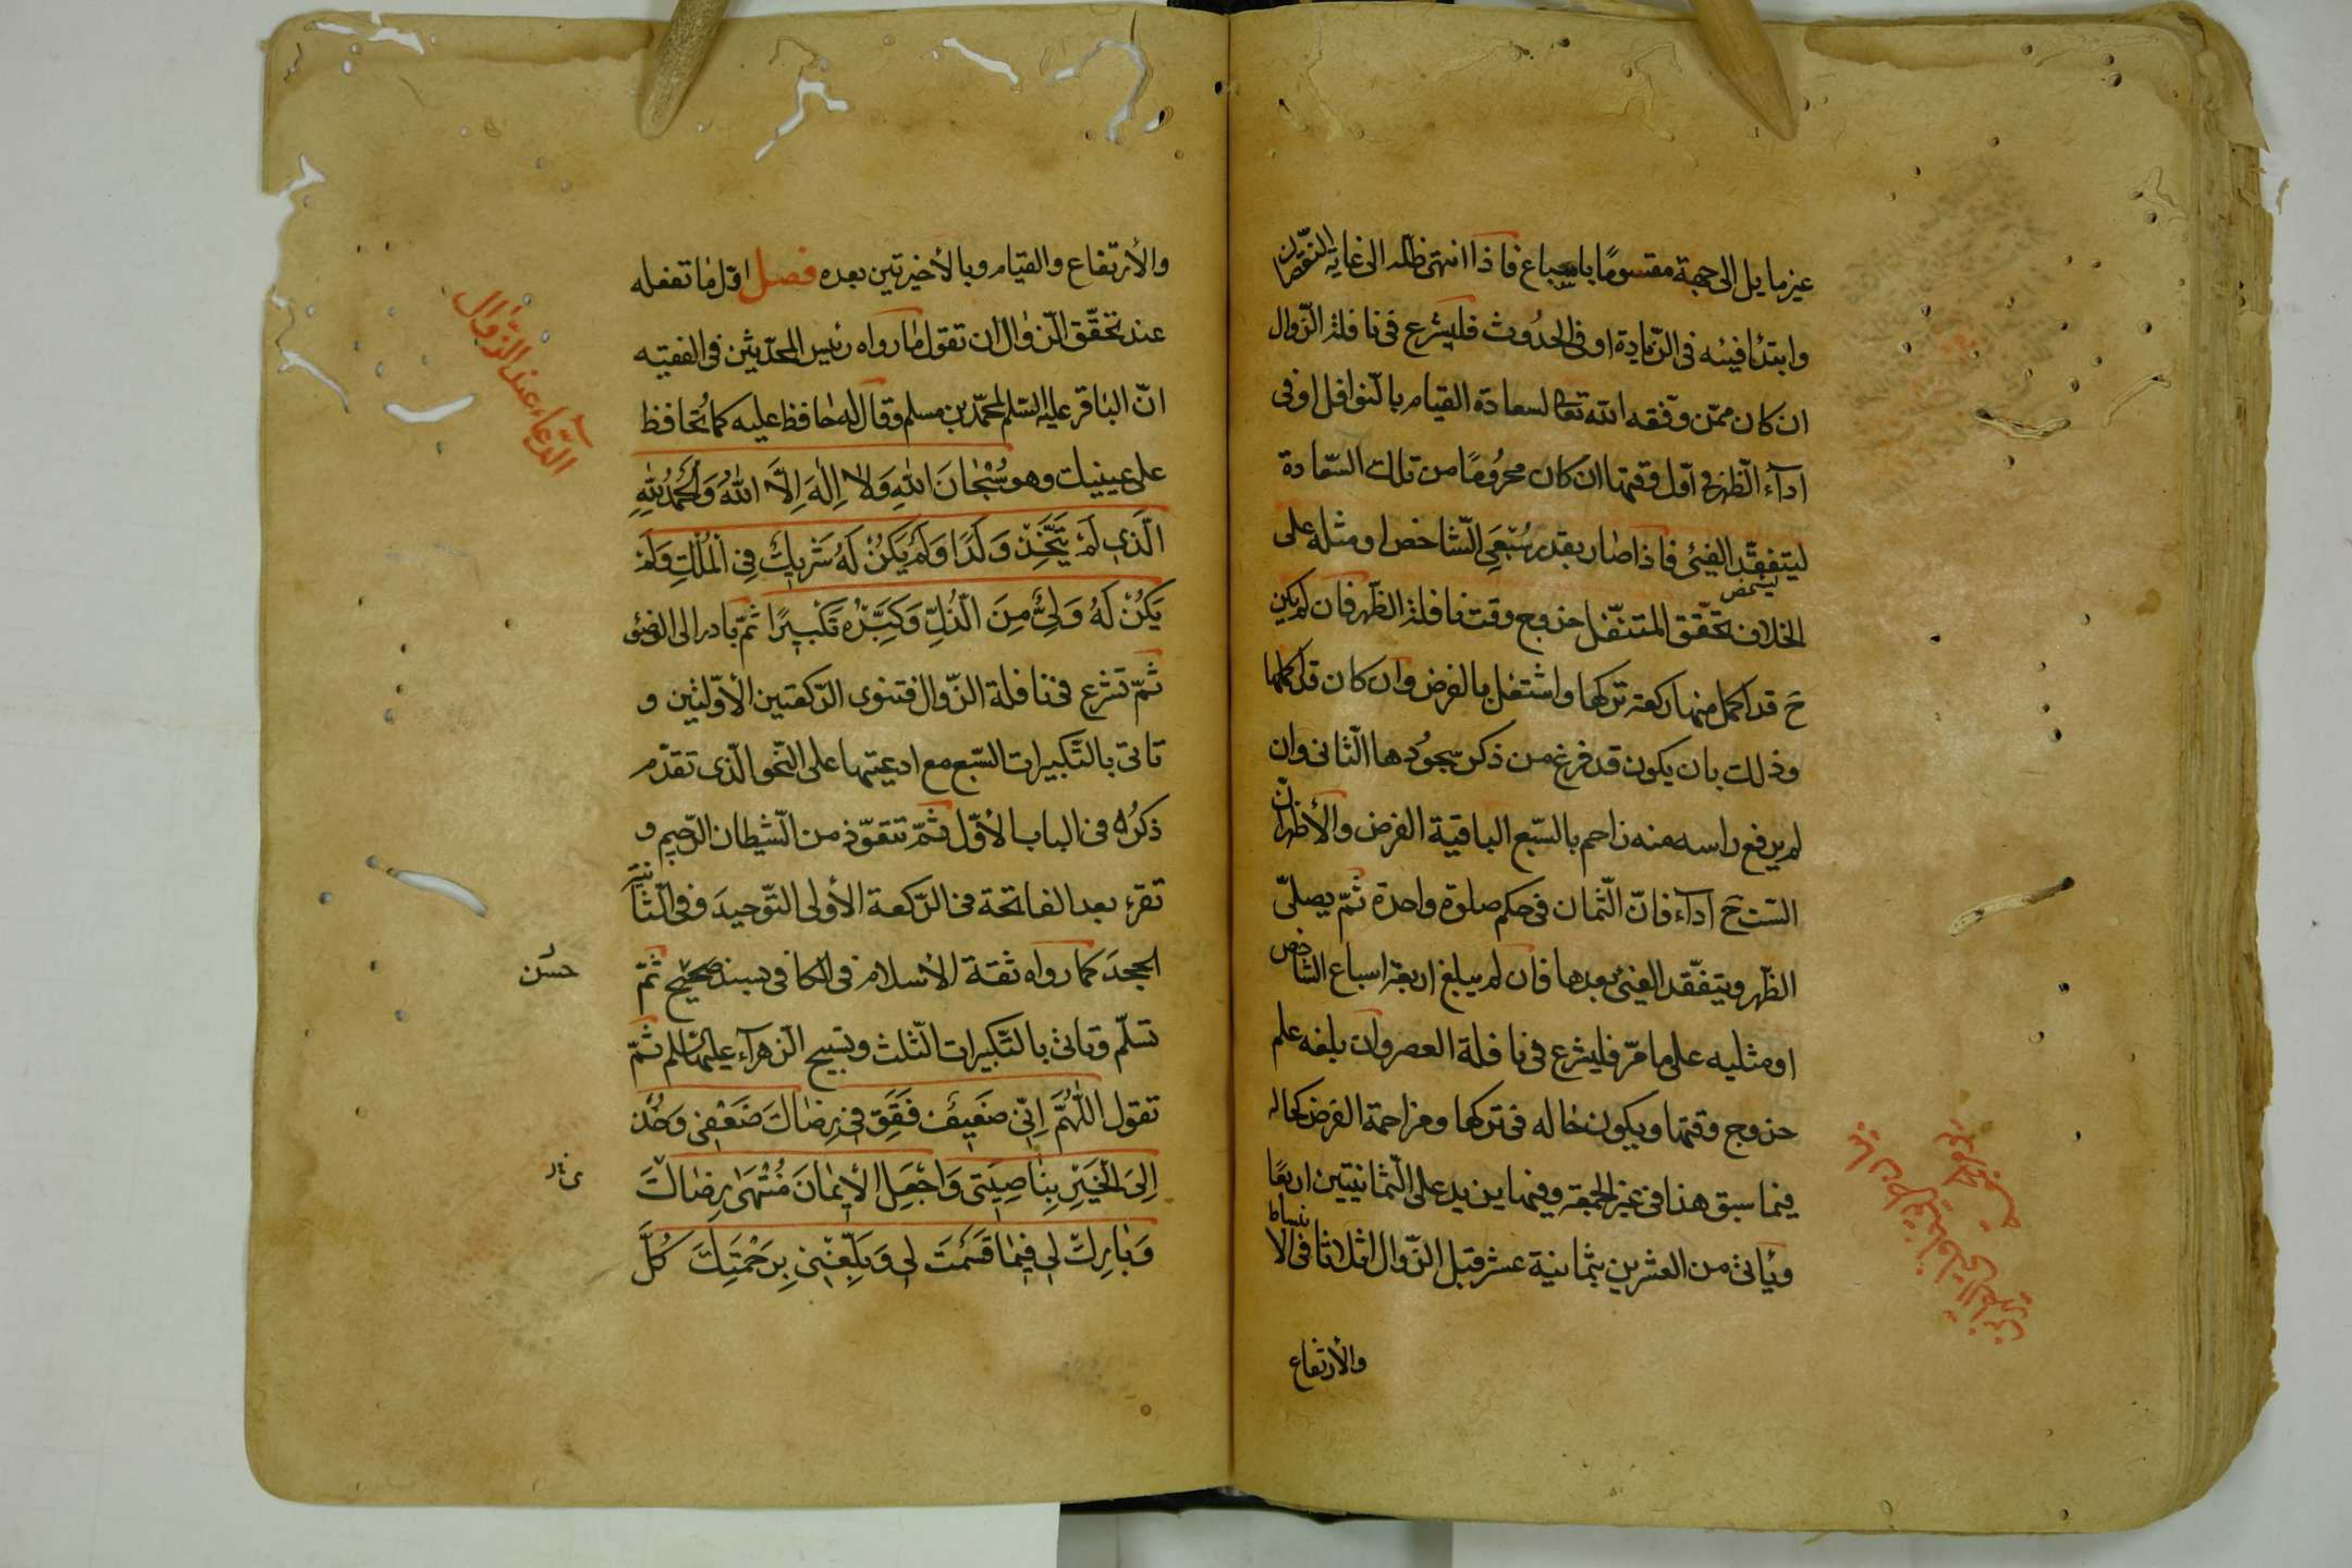 غير مايل الى جهة مقسومًا باسباع فاذا انتهى ظله الى غاية النقصان
وابتدٔا فيئه فى الزّيادة او فى الحدُوث فليشرع فى نافلة الزّوال
ان كان ممّن وفّقه الله تعالى لسعادة القيام بالنّوافل او فى
اداۤء الظّهر فى اوّل وقتها ان كان محرُومًا من تلك السّعادة
ليتفقّد الفيئ فاذا صار بقدر سُبْعَىِ الشّاخص او مثله على
الخلاف تحقّق المتنفّل خروج وقت نافلة الظّهر فان لم يكن
حَ قد اكمل منها ركعة تركها واشتغل بالفرض وان كان قد اكملها
وذلك بان يكون قد فرغ من ذكر سجُودها الثّانى وان
لم يرفع راسه منه زاحم بالسّبع الباقية الفرض والأظهر انّ
السّت حَ اداۤء فانّ الثّمان فى حكم صلوة واحدة ثمّ يصلّى
الظّهر ويتفّقد الفيئ بعدها فان لم يبلغ اربعة اسباع الشاخص
او مثليه على ما مرّ فليشرع فى نافلة العصر وان بلغه علم
خروج وقتها ويكون حاله فى تركها ومزاحمة الفرض كحاله
فيما سبق هذا فى غير الجمعة وفيها يزيد على الثّمانيتين اربعًا
وئاتى من العشرين بثمانية عشر قبل الزّوال اثلاثا فى الانبساط
والأرتفاع
والأرتفاع والقيام وبالأخيرتين بعده فصل اوّل ما تفعله
الدّعاء عند الزّوال
عند تحقّق الزّوال ان تقول ما رواه رئيس المحدّثين فى الفقيه
انّ الباقر عليه السّلم لمحمّد بن مسلم وقال له حافظ عليه كما تُحافظ
على عينيك وهو سُبْحَانَ اللهِ وَلاۤ اِلٰهَ اِلَّا اللهُ وَالْحَمْدُ لِلّٰهِ
الَّذِى لَمْ يَتَّخِذْ وَلَدًا وَلَمْ يَكُنْ لَهُ شَرِيكٌ فِى الْمُلْكِ وَلَمْ
يَكُنْ لَهُ وَلِىٌّ مِنَ الذُّلِّ وَكَبِّرْهُ تَكْبِيرًا ثمّ بادر الى الوضوء
ثمّ تشرع فى نافلة الزّوال فتنوى الرّكعتين الأوّلتين و
تاتى بالتّكبيرات السّبع مع ادعيتها على النّحو الّذى تقدّم
ذكرُه فى الباب الأوّل ثمّ تتعوّذ من الشّيطان الرّجيم و
تقرء بعد الفاتحة فى الرّكعة الأولى التّوحيدَ وفى الثّانية
الجحدَ كما رواه ثقة الأسلام فى الكافى بسند صحيح ثمّ
حسن
تسلّم وتاتى بالتّكبيرات الثّلث وتسبيح الزهراۤء عليها السلم ثمّ
تقول اللّٰهُمَّ اِنِّى ضَعِيفٌ فَقَوِّ فِى رِضَاكَ ضَعْفِى وَخُذْ
اِلَى الْخَيْرِ بِنَاصِيَتِى وَاجْعَلِ الْاِيمَانَ مُنْتَهٰى رِضَاكَ
وَبَارِكْ لِى فِيمَا قَسَمْتَ لِى وَبَلِّغْنِى بِرَحْمَتِكَ كُلَّ